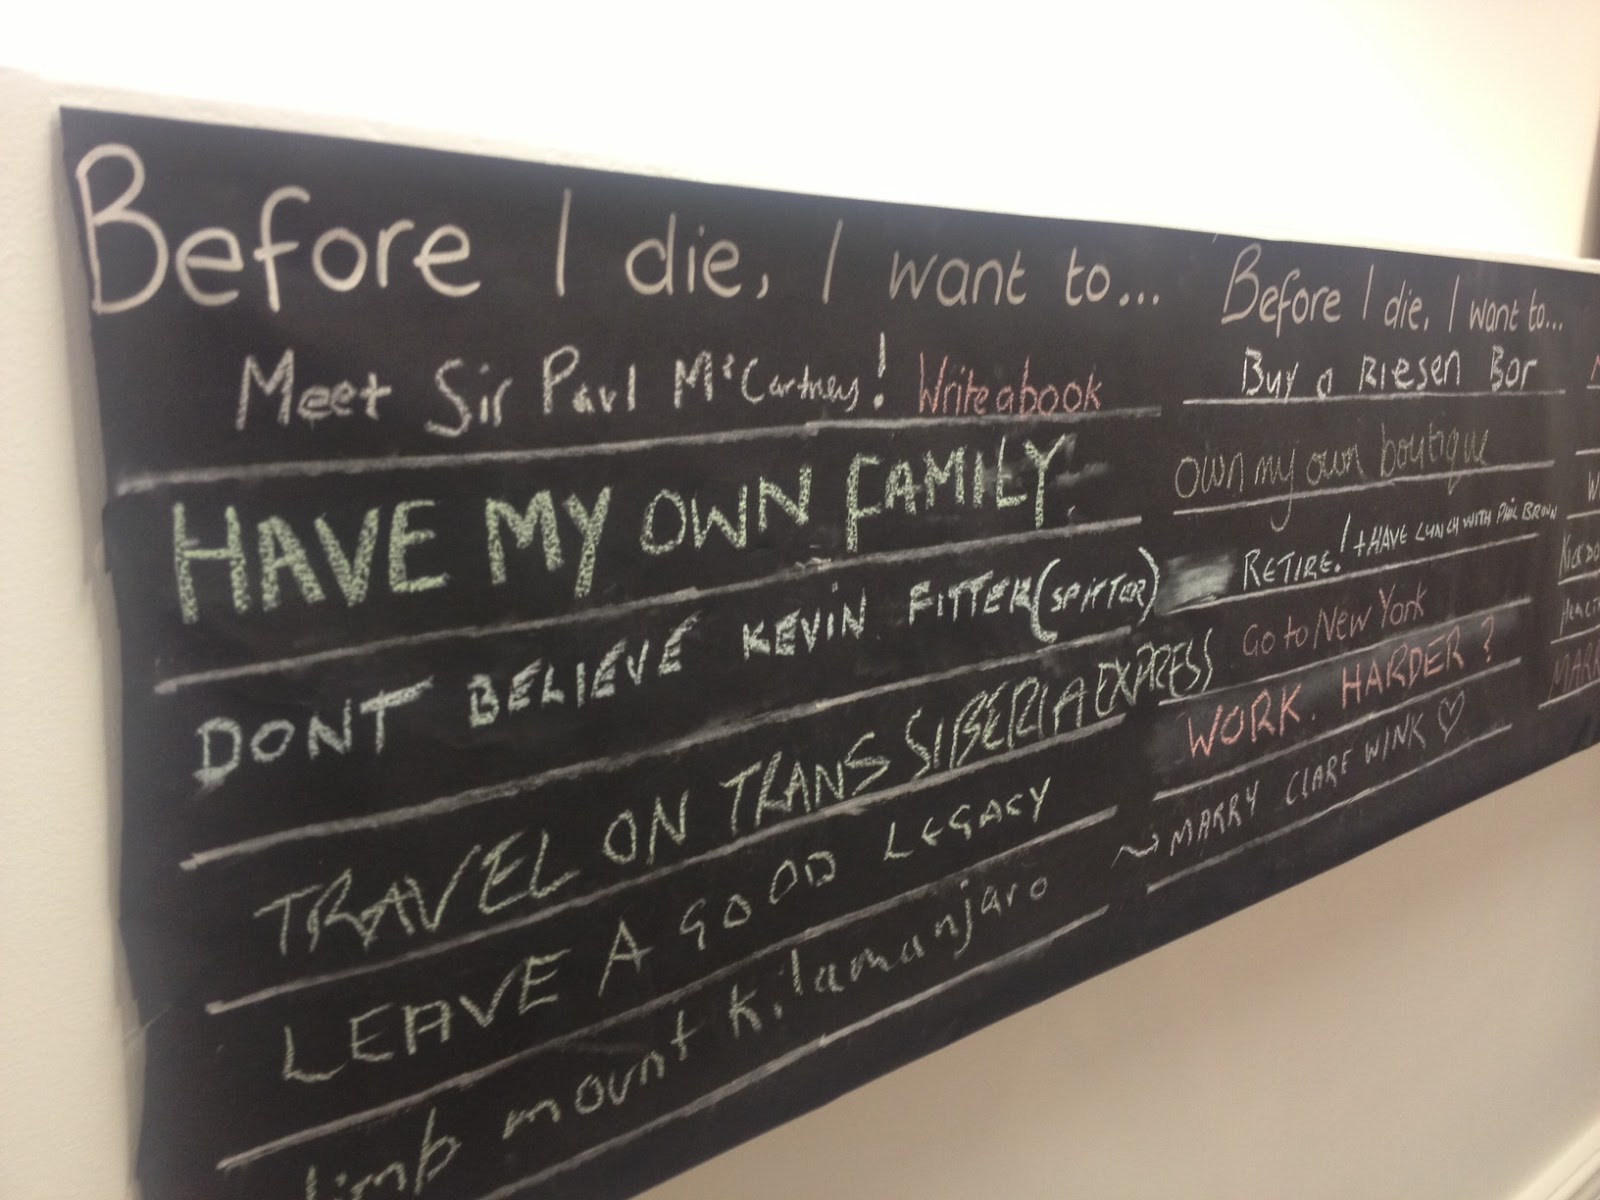 Before I die, I want to...
Meet Sir Paul McCartney! Write a book
HAVE MY OWN FAMILY.
DONT BELIEVE KEVIN FITTER (SPITTER)
TRAVEL ON TRANS SIBERIA EXPRESS
LEAVE A GOOD LEGACY
limb mount Kilamanjaro
Before I die, I want to...
BUY a RIESEN BAR
own my own boutique
RETIRE! + HAVE LUNCH WITH PHIL BROWN
Go to New York
WORK. HARDER?
~ MARRY CLARE WINK ♡